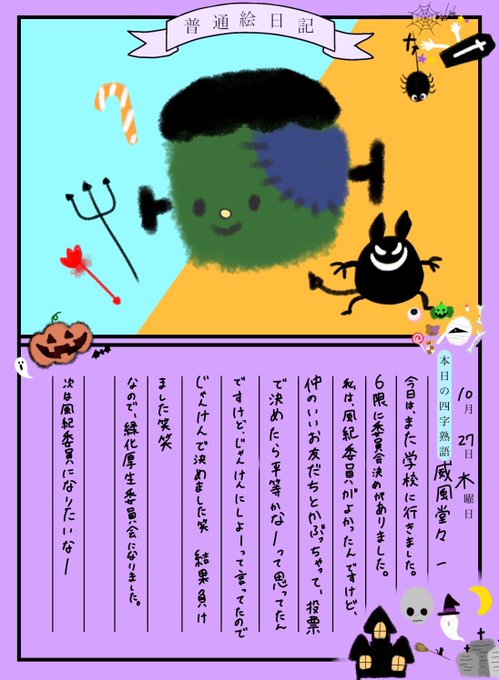 普通絵日記
10月27日木曜日
本日の四字熟語 威風堂々
今日は、また学校に行きました。
6限に委員会決めがありました。
私は、風紀委員がよかったんですけど、
仲のいいお友だちとかぶっちゃって、投票
で決めたら平等かなーって思ってたん
ですけど、じゃんけんにしよーって言ってたので
じゃんけんで決めました笑 結果負け
ました笑笑
なので、緑化厚生委員会になりました。
次は風紀委員になりたいなー